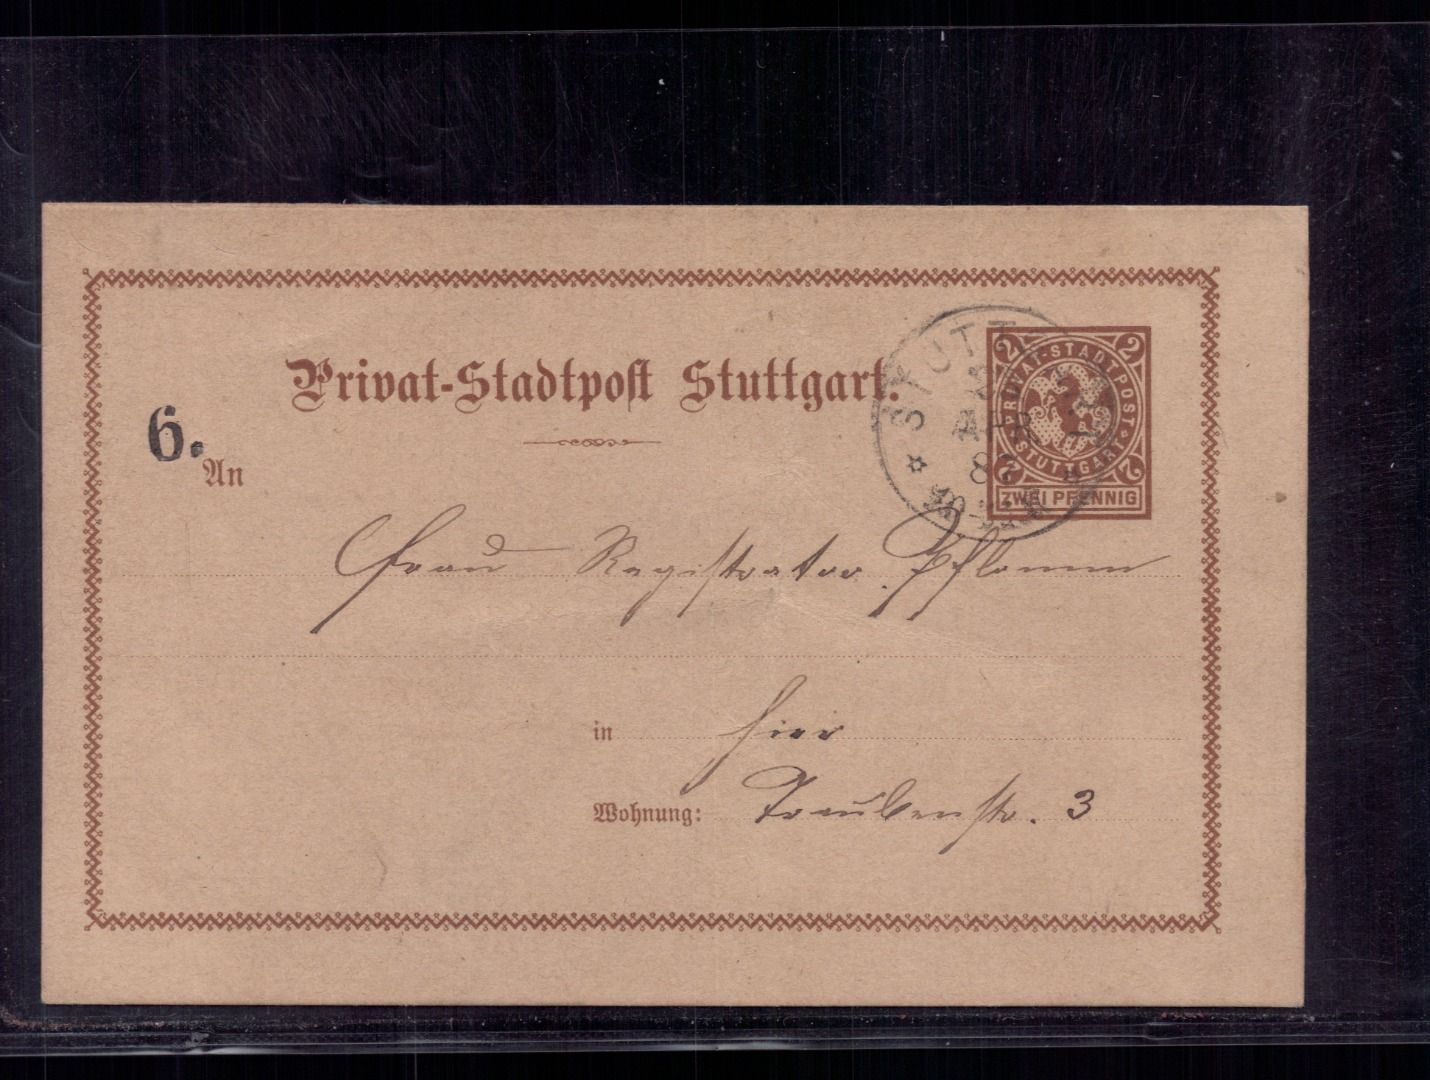 Privat-Stadtpost Stuttgart.
6.
An
2 2
PRIVAT-STADTPOST
STUTTGART
2 2
ZWEI PFENNIG
STUTT
APR
Frau Registrator Pflomm
in hier
Wohnung: Traubenstr. 3